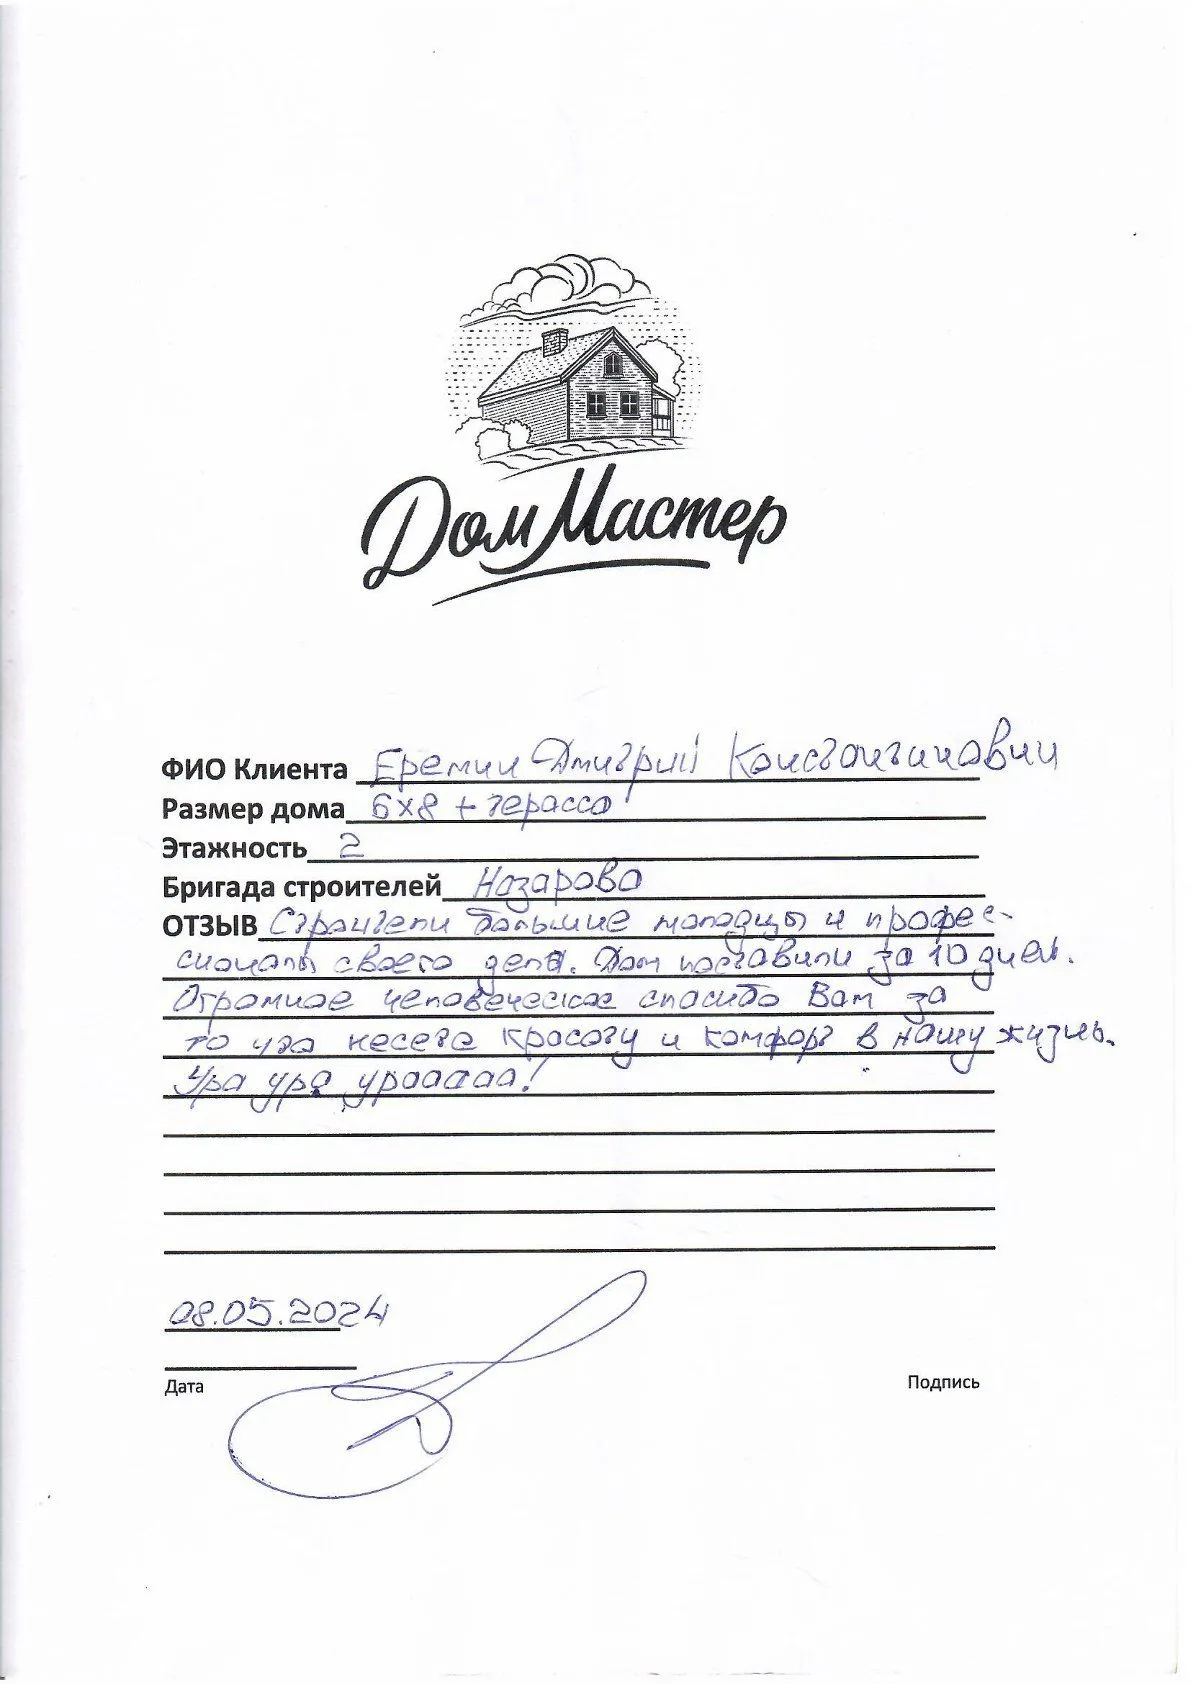 Дом Мастер
ФИО Клиента Еремин Дмитрий Константинович
Размер дома 6х8 + терасса
Этажность 2
Бригада строителей Назарова
ОТЗЫВ Строители большие молодцы и профес-
сионалы своего дела. Дом поставили за 10 дней.
Огромное человеческое спасибо Вам за
то что несете красоту и комфорт в нашу жизнь.
Ура ура урааааа!
08.05.2024
Дата Подпись